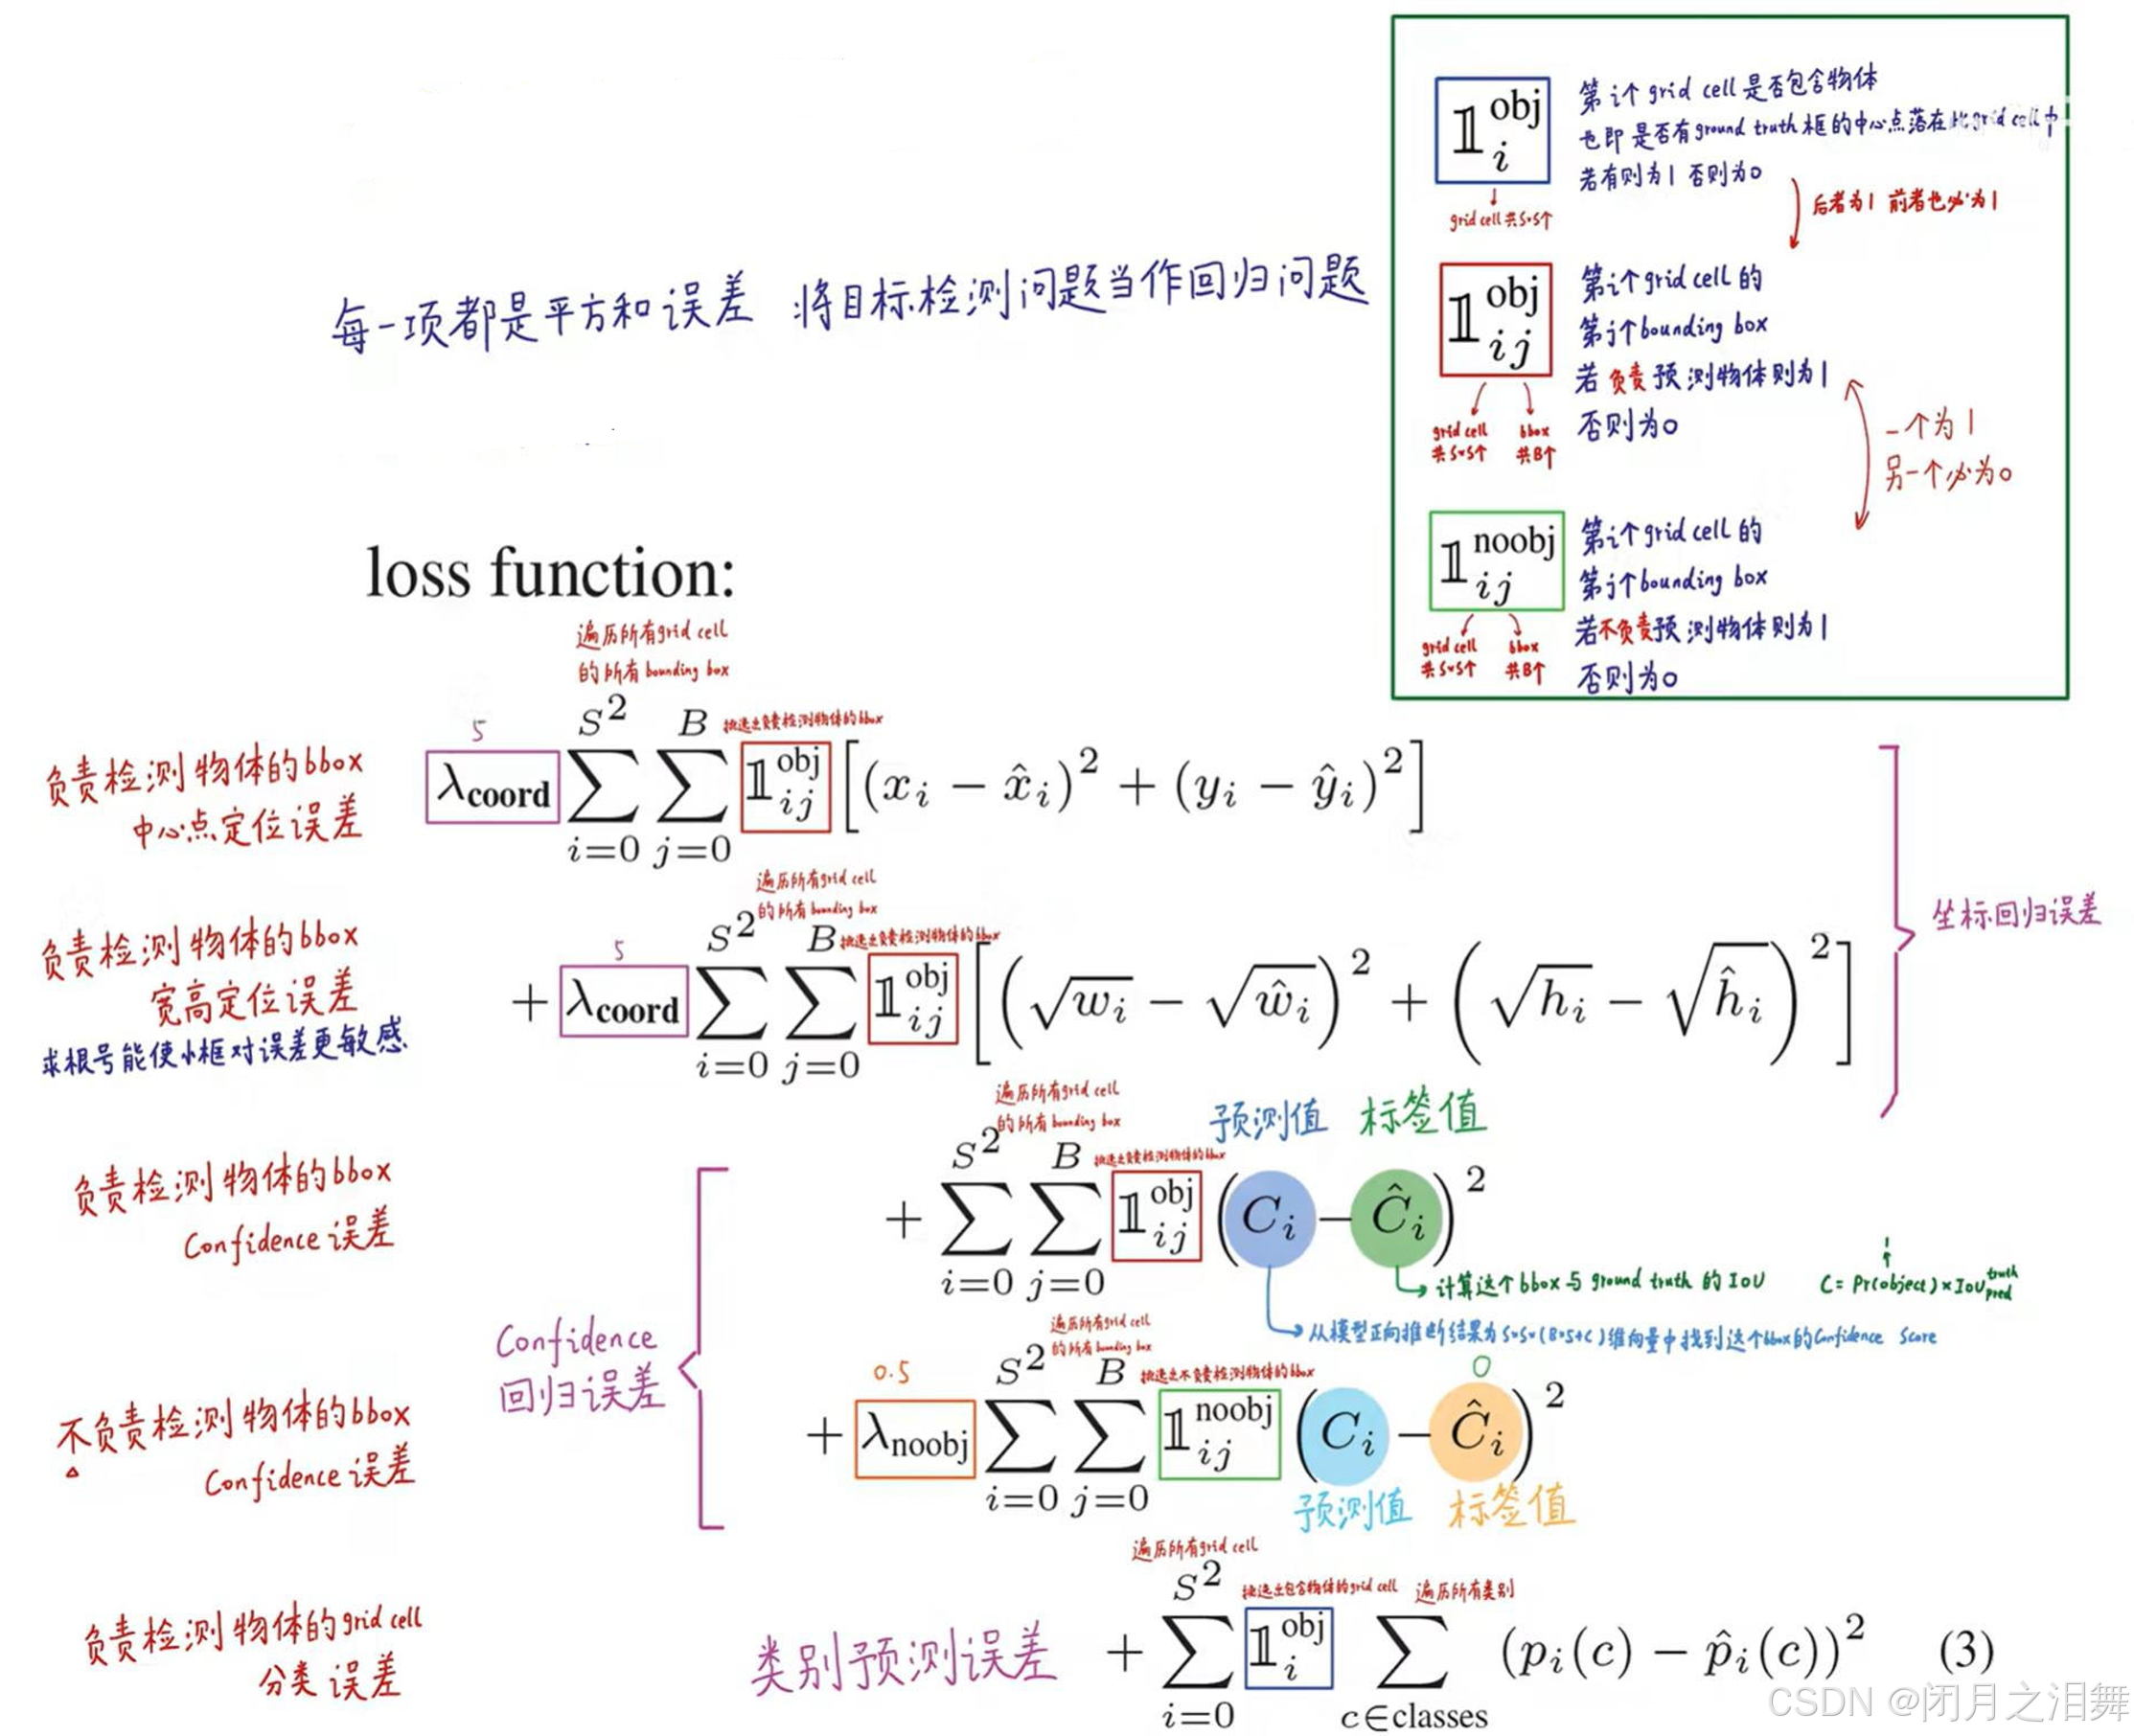 第i个grid cell是否包含物体
也即是否有ground truth框的中心点落在此grid cell中
若有则为1 否则为0
𝟙_i^obj
grid cell共S*S个
后者为1 前者也必为1
第i个grid cell的
第j个bounding box
若负责预测物体则为1
否则为0
𝟙_ij^obj
grid cell 共S*S个
bbox 共B个
一个为1
另一个必为0
第i个grid cell的
第j个bounding box
若不负责预测物体则为1
否则为0
𝟙_ij^noobj
grid cell 共S*S个
bbox 共B个
每一项都是平方和误差 将目标检测问题当作回归问题
loss function:
遍历所有grid cell
的所有bounding box
5
挑选出负责检测物体的bbox
负责检测物体的bbox
中心点定位误差
λ_coord ∑_{i=0}^{S^2} ∑_{j=0}^{B} 𝟙_ij^obj [(x_i − x̂_i)^2 + (y_i − ŷ_i)^2]
遍历所有grid cell
的所有bounding box
5
挑选出负责检测物体的bbox
负责检测物体的bbox
宽高定位误差
求根号能使小框对误差更敏感
+ λ_coord ∑_{i=0}^{S^2} ∑_{j=0}^{B} 𝟙_ij^obj [(√w_i − √ŵ_i)^2 + (√h_i − √ĥ_i)^2]
坐标回归误差
遍历所有grid cell
的所有bounding box
预测值 标签值
挑选出负责检测物体的bbox
负责检测物体的bbox
Confidence误差
+ ∑_{i=0}^{S^2} ∑_{j=0}^{B} 𝟙_ij^obj (C_i − Ĉ_i)^2
计算这个bbox与ground truth的IoU
1
C = Pr(object) × IoU_pred^truth
从模型正向推断结果为S*S*(B*5+C)维向量中找到这个bbox的Confidence Score
Confidence
回归误差
遍历所有grid cell
的所有bounding box
0.5
挑选出不负责检测物体的bbox
0
不负责检测物体的bbox
Confidence误差
+ λ_noobj ∑_{i=0}^{S^2} ∑_{j=0}^{B} 𝟙_ij^noobj (C_i − Ĉ_i)^2
预测值 标签值
遍历所有grid cell
挑选出包含物体的grid cell
遍历所有类别
负责检测物体的grid cell
分类误差
类别预测误差
+ ∑_{i=0}^{S^2} 𝟙_i^obj ∑_{c∈classes} (p_i(c) − p̂_i(c))^2 (3)
CSDN @闭月之泪舞